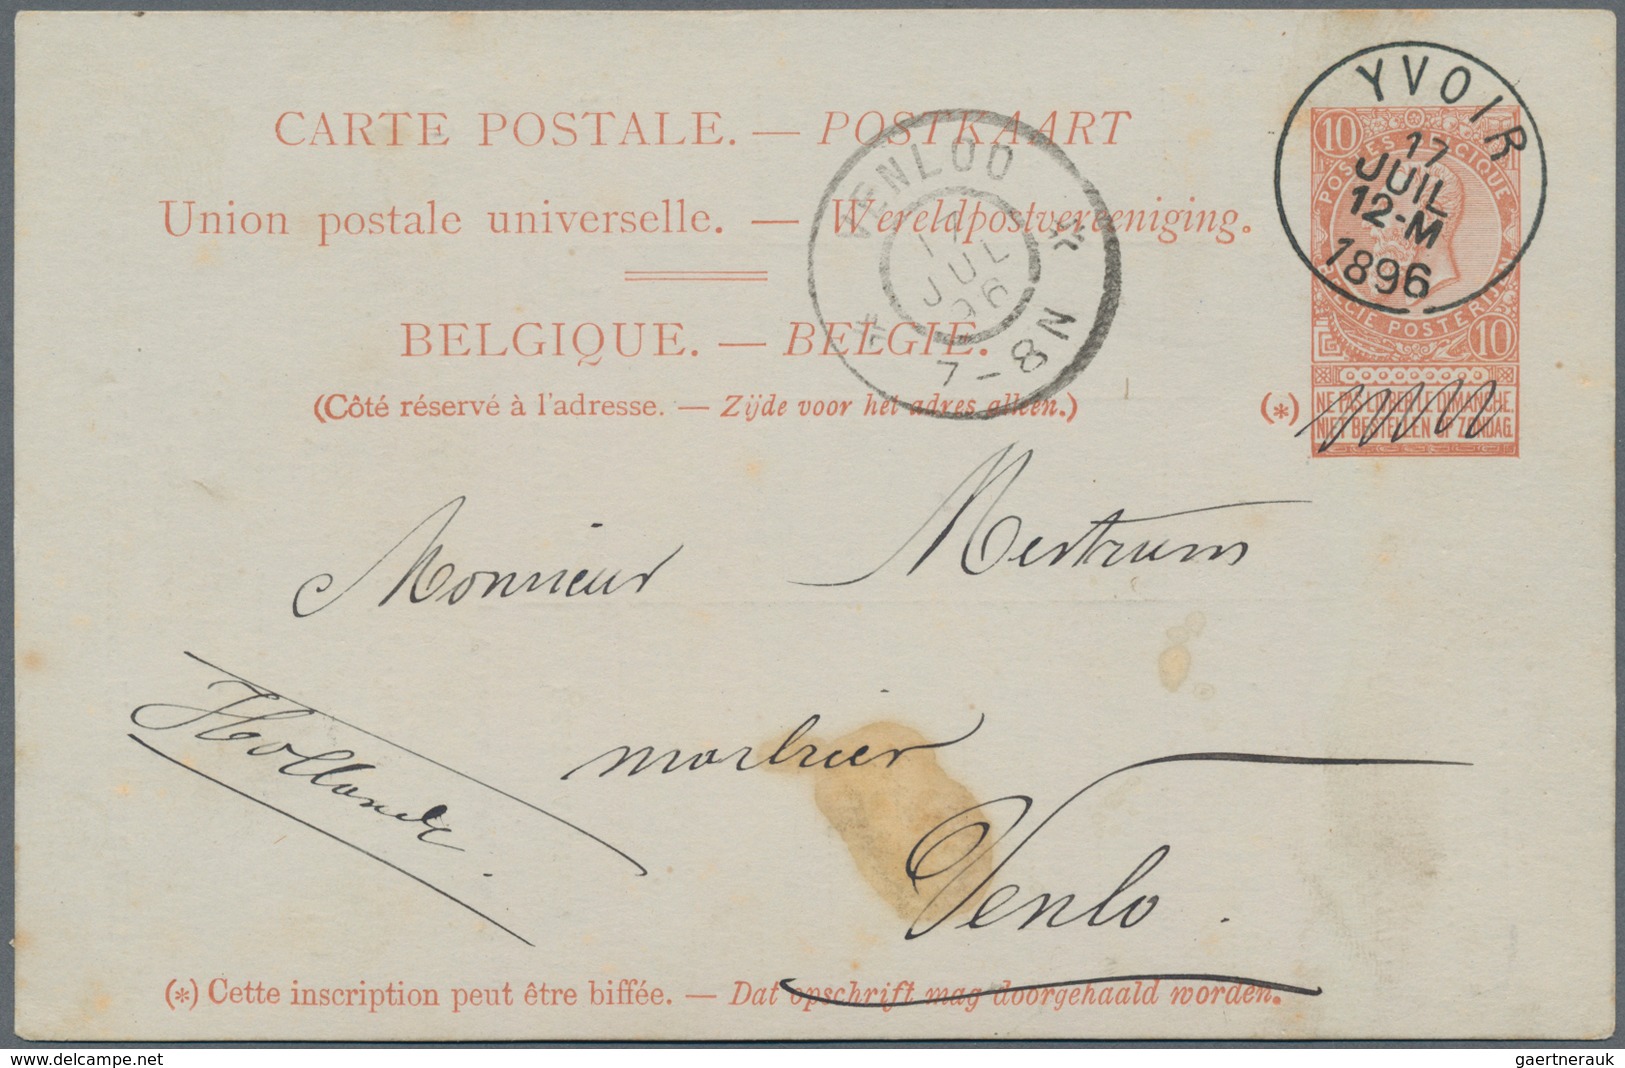 CARTE POSTALE. — POSTKAART
Union postale universelle. — Wereldpostvereeniging.
BELGIQUE. — BELGIË.
(Côté réservé à l'adresse. — Zijde voor het adres alleen.)
VENLOO
17
JUL
96
7-8N
YVOIR
17
JUIL
12-M
1896
10 10
POSTES BELGIQUE
BELGIE POSTERIJN
10
(*)
NE PAS LIVRER LE DIMANCHE.
NIET BESTELLEN OP ZONDAG.
Monsieur Mertrum
Hollande.
marbrier
Venlo.
(*) Cette inscription peut être biffée. — Dat opschrift mag doorgehaald worden.
www.delcampe.net
gaertnerauk